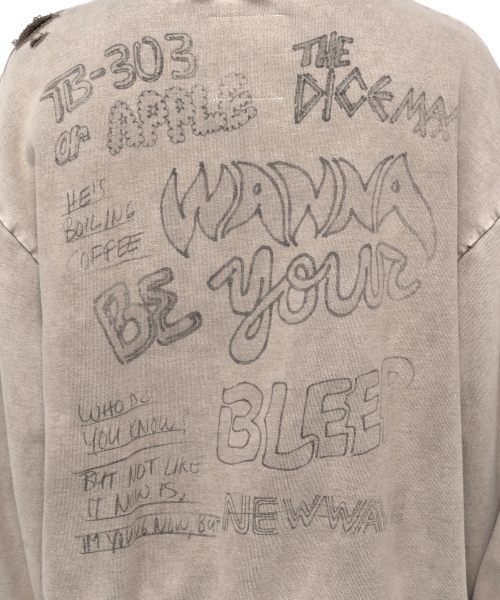 TB-303
or APPLE
THE
DICEMAN
HE'S
BOILING
COFFEE
WANNA
BE YOUR
WHO DO
YOU KNOW?
BLEEP
BUT NOT LIKE
IT NOW IS.
I'M YOUNG NOW, BUT
NEWWAV